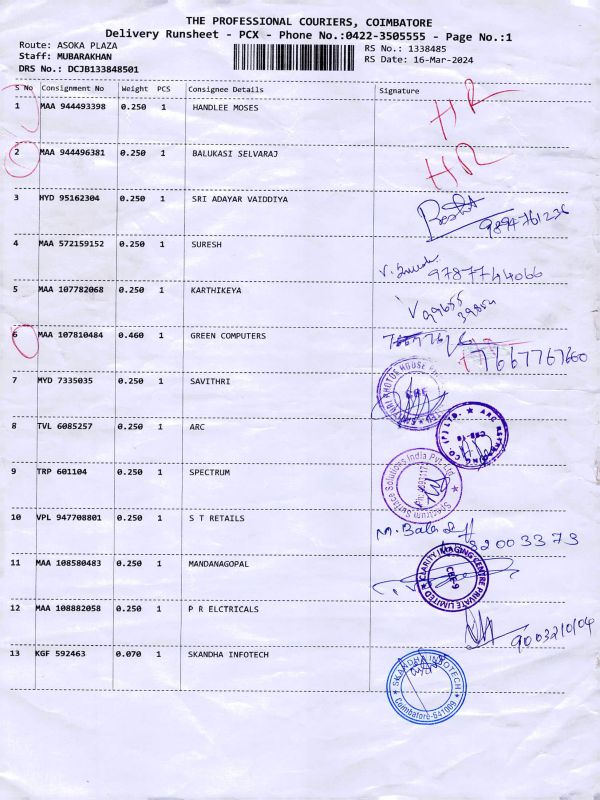 THE PROFESSIONAL COURIERS, COIMBATORE
Delivery Runsheet - PCX - Phone No.:0422-3505555 - Page No.:1
Route: ASOKA PLAZA RS No.: 1338485
Staff: MUBARAKHAN RS Date: 16-Mar-2024
DRS No.: DCJB133848501
S No Consignment No Weight PCS Consignee Details Signature
1 MAA 944493398 0.250 1 HANDLEE MOSES HR
2 MAA 944496381 0.250 1 BALUKASI SELVARAJ HR
3 HYD 95162304 0.250 1 SRI ADAYAR VAIDDIYA 9894761236
4 MAA 572159152 0.250 1 SURESH 9787744066
5 MAA 107782068 0.250 1 KARTHIKEYA
6 MAA 107810484 0.460 1 GREEN COMPUTERS 7667767660
7 MYD 7335035 0.250 1 SAVITHRI SAVITHRI PHOTOE HOUSE CBE
8 TVL 6085257 0.250 1 ARC ARC CO. (P) LTD.
9 TRP 601104 0.250 1 SPECTRUM Spectrum Surface Solutions India Pvt. Ltd.
10 VPL 947708801 0.250 1 S T RETAILS M. Bala
11 MAA 108580483 0.250 1 MANDANAGOPAL CLARITY IMAGING CENTRE PRIVATE LIMITED CBE-9
12 MAA 108882058 0.250 1 P R ELCTRICALS 9003210104
13 KGF 592463 0.070 1 SKANDHA INFOTECH SKANDHA INFOTECH Coimbatore-641009